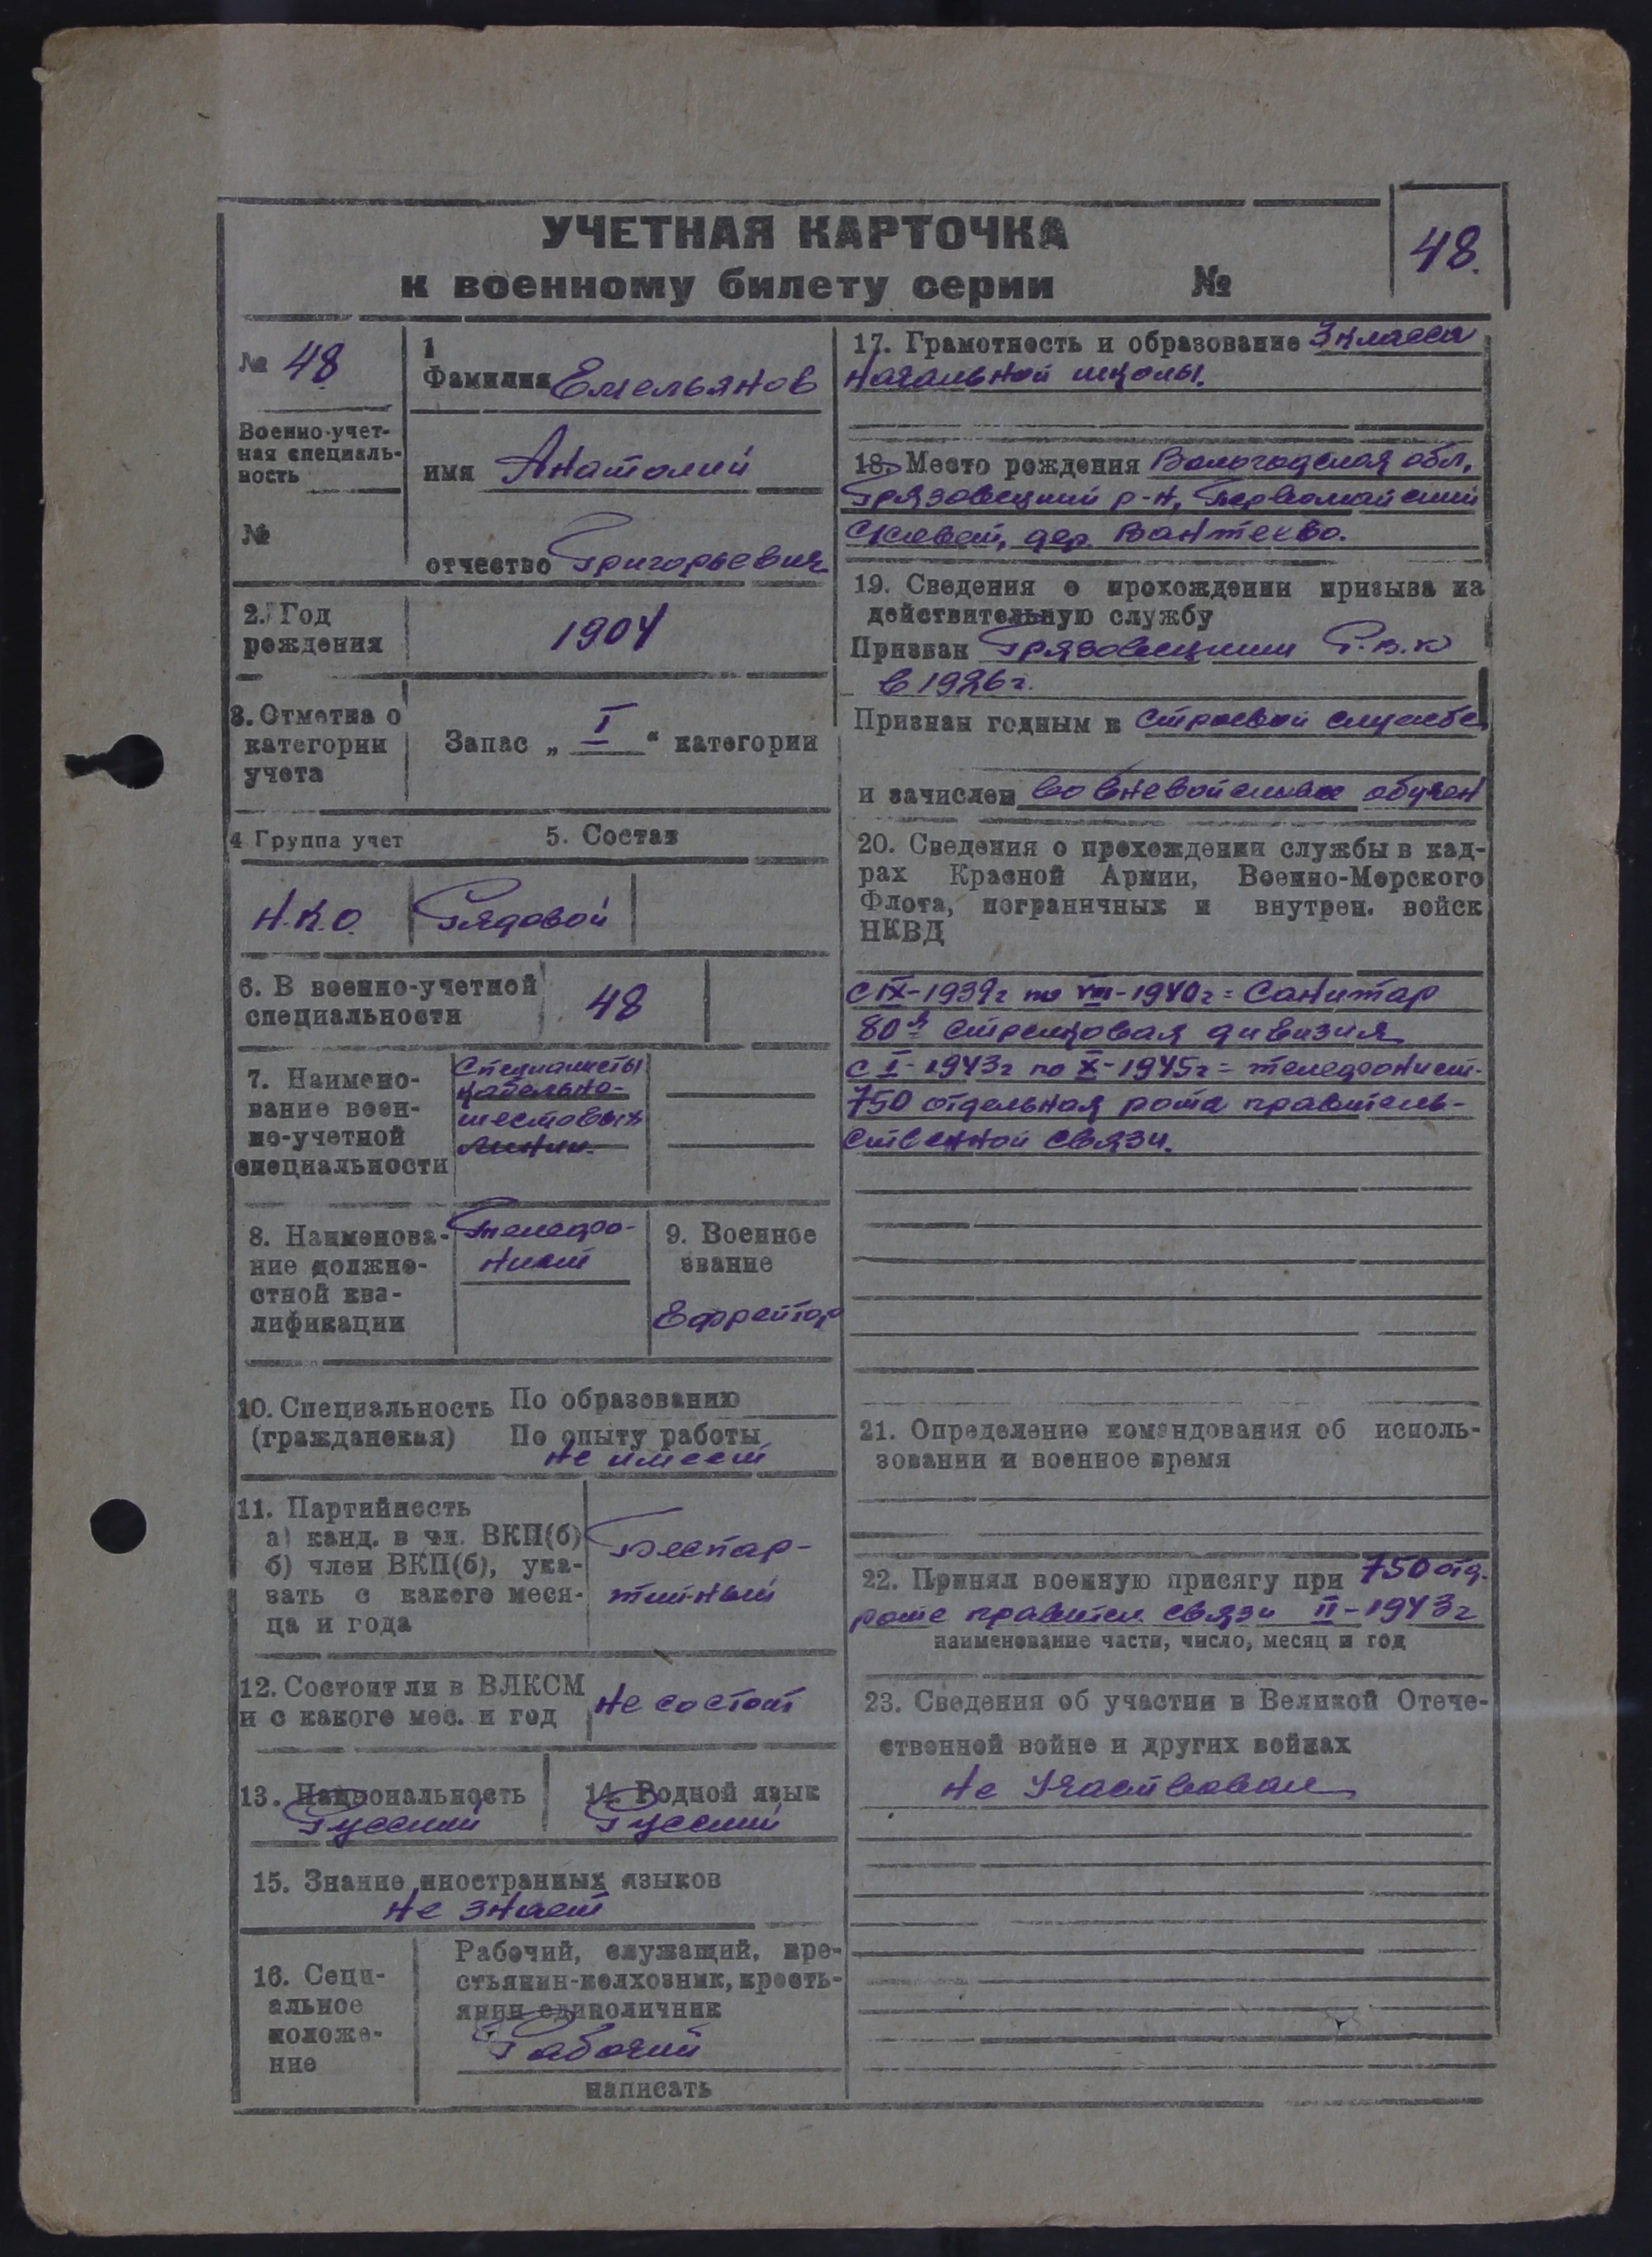 УЧЕТНАЯ КАРТОЧКА
к военному билету серии №
48.
№ 48
Военно-учет-
ная специаль-
ность
№
1
Фамилия Емельянов
имя Анатолий
отчество Григорьевич
2. Год
рождения
1904
3. Отметка о
категории
учета
Запас „ I “ категории
4 Группа учет
5. Состав
Н.К.О.
Рядовой
6. В военно-учетной
специальности
48
7. Наимено-
вание воен-
но-учетной
специальности
Специалисты
кабельно-
шестовых
линии.
8. Наименова-
ние должно-
стной ква-
лификации
Телефо-
нист
9. Военное
звание
Ефрейтор
10. Специальность
(гражданская)
По образованию
По опыту работы
не имеет
11. Партийность
а) канд. в чл. ВКП(б)
б) член ВКП(б), ука-
зать с какого меся-
ца и года
Беспар-
тийный
12. Состоит ли в ВЛКСМ
и с какого мес. и год
Не состоит
13. Национальность
Русский
14. Родной язык
Русский
15. Знание иностранных языков
Не знает
16. Соци-
альное
положе-
ние
Рабочий, служащий, кре-
стьянин-колхозник, кресть-
янин единоличник
Рабочий
написать
17. Грамотность и образование 3 класса
начальной школы.
18. Место рождения Вологодская обл,
Грязовецкий р-н, Первомайский
с/совет, дер. Вантеево.
19. Сведения о прохождении призыва на
действительную службу
Призван Грязовецким Р.В.К
в 1926 г.
Признан годным к строевой службе
и зачислен во вневойсков обучен
20. Сведения о прохождении службы в кад-
рах Красной Армии, Военно-Морского
Флота, пограничных и внутрен. войск
НКВД
с IX-1939г по VIII-1940г = Санитар
80я стрелковая дивизия
с I-1943г по X-1945г = телефонист-
750 отдельная рота правитель-
ственной связи.
21. Определение командования об исполь-
зовании в военное время
22. Принял военную присягу при 750 отд.
роте правител. связи II-1943г
наименование части, число, месяц и год
23. Сведения об участии в Великой Отече-
ственной войне и других войнах
Не участвовал